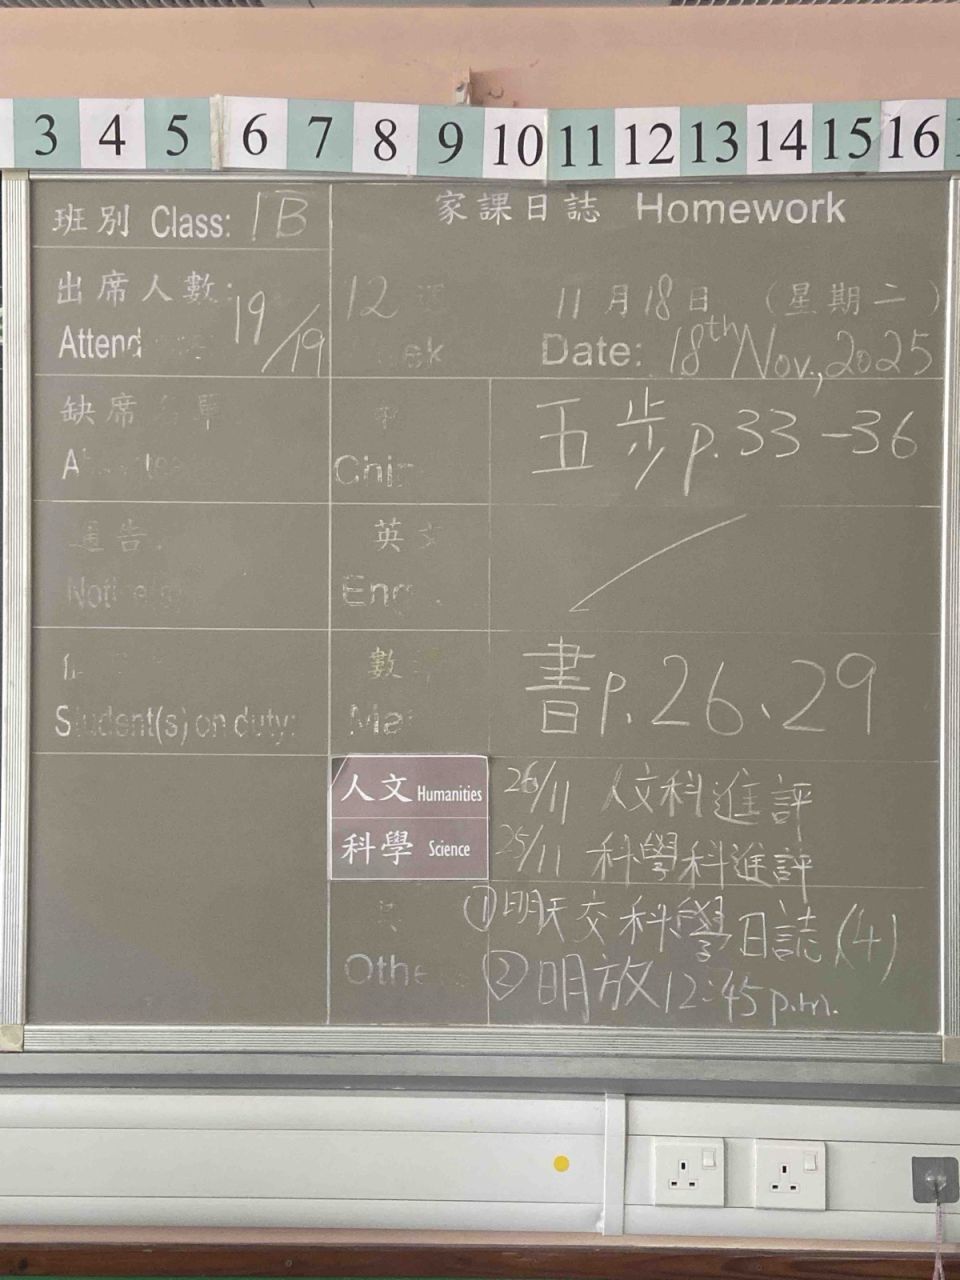 3 4 5 6 7 8 9 10 11 12 13 14 15 16
班別 Class: 1B
家課日誌 Homework
出席人數: 19/19
Attend
12 週
11月18日 (星期二)
Date: 18th Nov., 2025
缺席名單
中
Chin
五步 p.33-36
通告:
英文
Eng
數學
Ma
書p.26、29
Student(s) on duty:
人文 Humanities
26/11 人文科進評
科學 Science
25/11 科學科進評
其
Othe
①明天交科學日誌(4)
②明放12:45p.m.